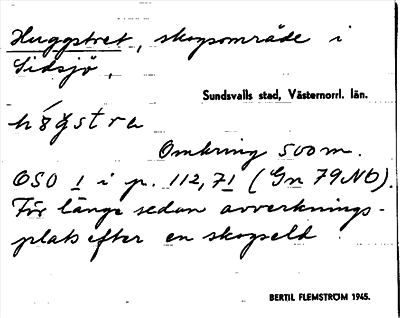 Huggstret, skogsområde i
Sidsjö,
Sundsvalls stad, Västernorrl. län.
Omkring 500 m.
OSO 1 i p. 112,71 (Gn 79Nb).
För länge sedan avverknings-
plats efter en skogseld.
BERTIL FLEMSTRÖM 1945.